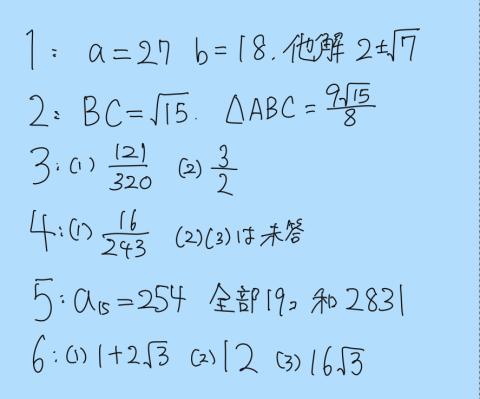 1: a=27 b=18. 他解 2±√7
2: BC=√15. △ABC=9√15/8
3:(1) 121/320 (2) 3/2
4:(1) 16/243 (2)(3)は未答
5:a₁₅=254 全部19コ 和2831
6:(1)1+2√3 (2)12 (3)16√3